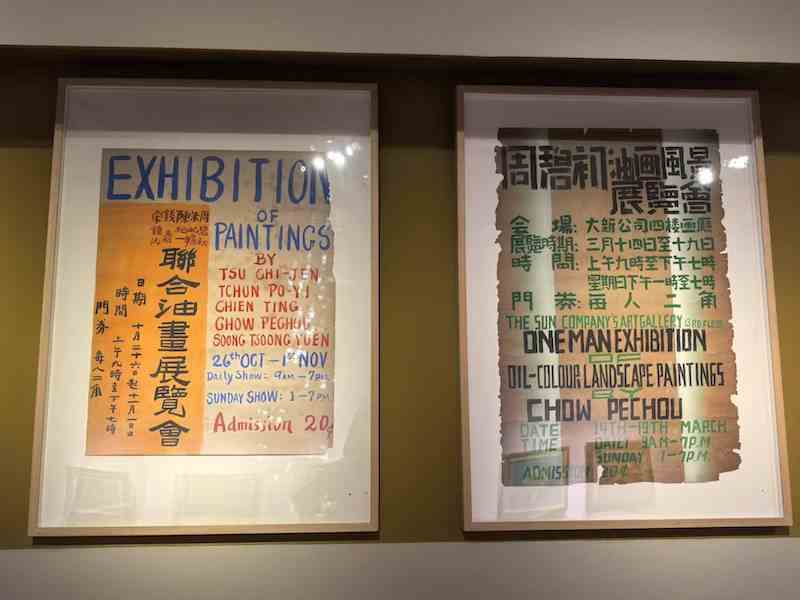 EXHIBITION
OF
PAINTINGS
BY
TSU CHI-JEN
TCHUN PO-YI
CHIEN TING
CHOW PECHOU
SOONG TSOONG YUEN
26th OCT - 1st NOV
Daily Show: 9AM - 7PM
SUNDAY SHOW: 1-7PM
Admission 20
聯合油畫展覽會
日期 十月二十六日起十一月一日
時間 上午九時至下午七時
門券 每人二角
周碧初油画風景
展覽會
会場:大新公司四楼画廳
展覽時期:三月十四日至十九日
時間:上午九時至下午七時
星期日下午一時至七時
門券:每人二角
THE SUN COMPANY'S ART GALLERY
ONE MAN EXHIBITION
OF
OIL-COLOUR LANDSCAPE PAINTINGS
BY
CHOW PECHOU
DATE 14TH-19TH MARCH
TIME DAILY 9AM-7PM
SUNDAY 1-7PM.
ADMISSION 20¢